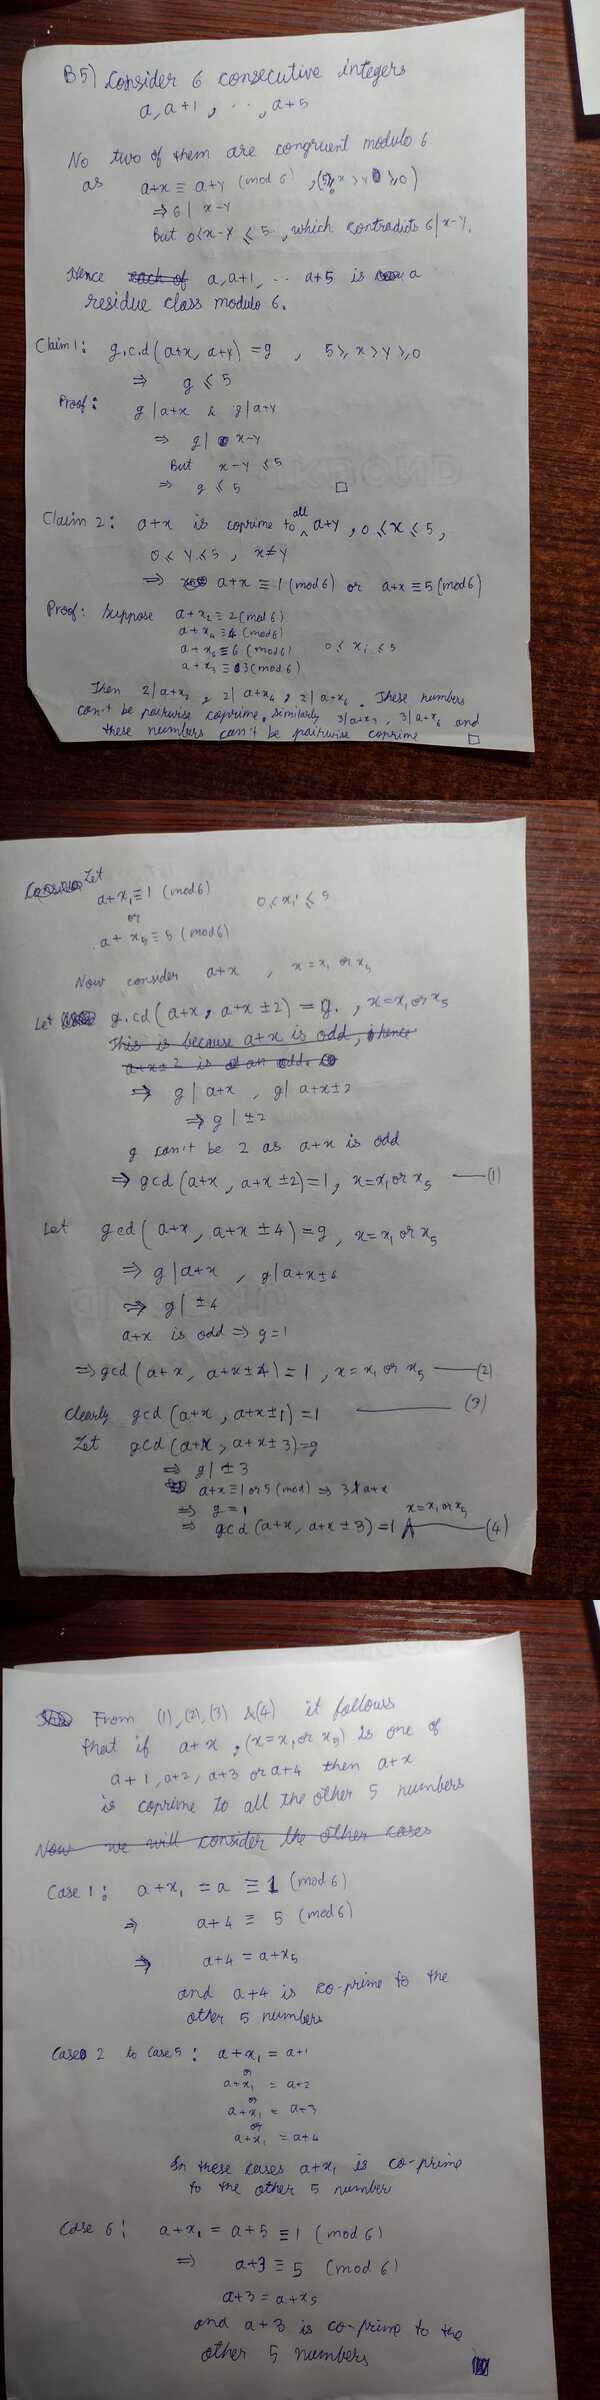 B5) Consider 6 consecutive integers
a, a+1, ..., a+5
No two of them are congruent modulo 6
as a+x ≡ a+y (mod 6), (5≥x>y≥0)
⇒ 6 | x-y
But 0<x-y ≤ 5, which contradicts 6 | x-y.
Hence each of a, a+1, ... a+5 is a
residue class modulo 6.
Claim 1: g.c.d (a+x, a+y) = g, 5≥x>y≥0
⇒ g ≤ 5
Proof: g | a+x & g | a+y
⇒ g | x-y
But x-y ≤ 5
⇒ g ≤ 5 □
Claim 2: a+x is coprime to all a+y, 0≤x≤5,
0≤y≤5, x≠y
⇒ a+x ≡ 1 (mod 6) or a+x ≡ 5 (mod 6)
Proof: Suppose a+x₂ ≡ 2 (mod 6)
a+x₄ ≡ 4 (mod 6)
a+x₆ ≡ 6 (mod 6) 0≤xᵢ≤5
a+x₃ ≡ 3 (mod 6)
Then 2 | a+x₂, 2 | a+x₄, 2 | a+x₆. These numbers
can't be pairwise coprime. Similarly 3 | a+x₃, 3 | a+x₆ and
these numbers can't be pairwise coprime □
Let
a+x₁ ≡ 1 (mod 6) 0≤xᵢ≤5
or
a+x₅ ≡ 5 (mod 6)
Now consider a+x, x=x₁ or x₅
Let g.cd (a+x, a+x±2) = g., x=x₁ or x₅
This is because a+x is odd, hence
a+x±2 is an odd.
⇒ g | a+x, g | a+x±2
⇒ g | ±2
g can't be 2 as a+x is odd
⇒ gcd (a+x, a+x±2)=1, x=x₁ or x₅ —(1)
Let gcd (a+x, a+x±4) = g, x=x₁ or x₅
⇒ g | a+x, g | a+x±4
⇒ g | ±4
a+x is odd ⇒ g=1
⇒ gcd (a+x, a+x±4) = 1, x=x₁ or x₅ —(2)
Clearly gcd (a+x, a+x±1)=1 —(3)
Let gcd (a+x, a+x±3)=g
⇒ g | ±3
a+x ≡ 1 or 5 (mod) ⇒ 3∤a+x
⇒ g=1
⇒ gcd (a+x, a+x±3)=1 x=x₁ or x₅ —(4)
From (1), (2), (3) & (4) it follows
that if a+x, (x=x₁ or x₅) is one of
a+1, a+2, a+3 or a+4 then a+x
is coprime to all the other 5 numbers
Now we will consider the other cases
Case 1: a+x₁ = a ≡ 1 (mod 6)
⇒ a+4 ≡ 5 (mod 6)
⇒ a+4 = a+x₅
and a+4 is co-prime to the
other 5 numbers
Case 2 to case 5: a+x₁ = a+1
or
a+x₁ = a+2
or
a+x₁ = a+3
or
a+x₁ = a+4
In these cases a+x₁ is co-prime
to the other 5 number
Case 6: a+x₁ = a+5 ≡ 1 (mod 6)
⇒ a+3 ≡ 5 (mod 6)
a+3 = a+x₅
and a+3 is co-prime to the
other 5 numbers